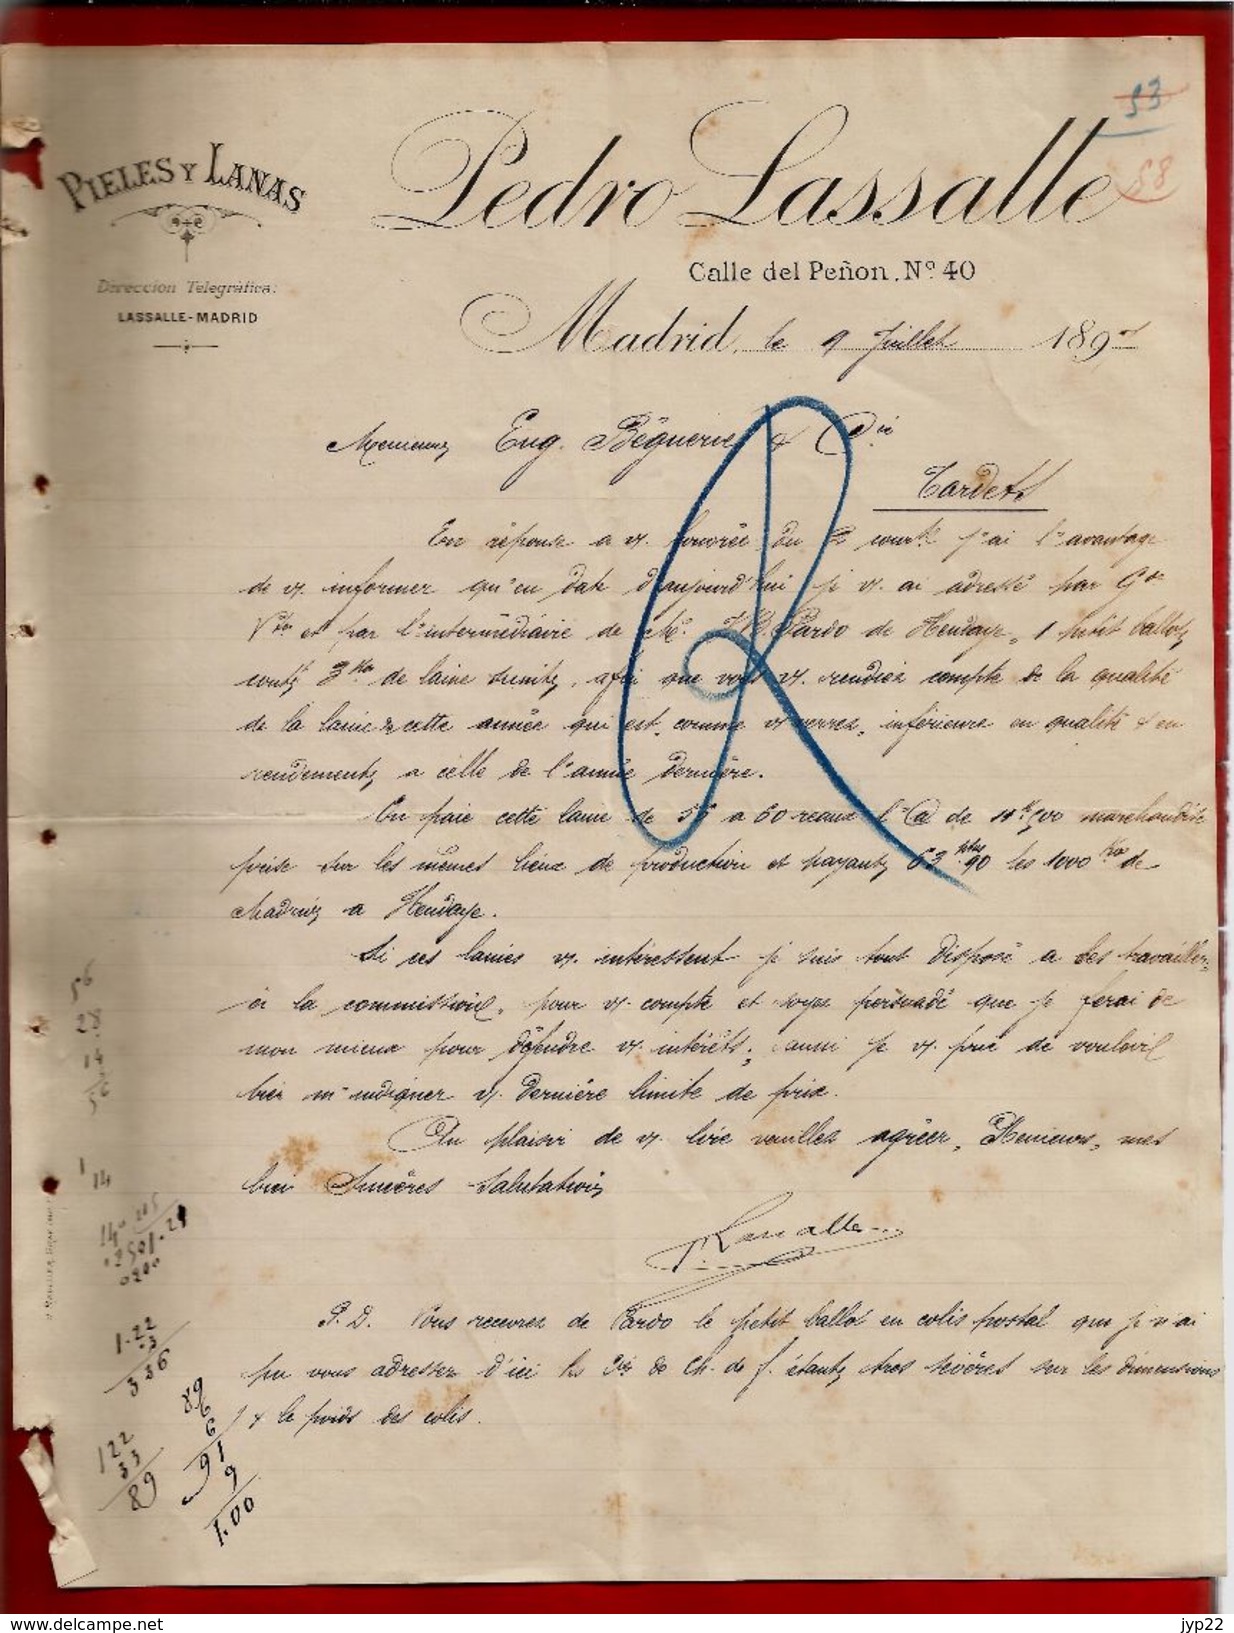 53
58
PIELES Y LANAS
Pedro Lassalle
Calle del Peñon, Nº 40
Dirección Telegráfica:
LASSALLE-MADRID
Madrid, le 9 Juillet 189
Messieurs Eug. Béguerie & Cie
Tardets
En réponse a v. honorée du 2 court j'ai l'avantage
de v. informer qu'en date d'aujourd'hui je v. ai adressé par Gde
Vtsse et par l'intermédiaire de Mr. Pardo de Hendaye, 1 petit ballot
contt 3 kos de laine suint, afin que vous v. rendiez compte de la qualité
de la laine de cette année qui est, comme v. verrez, inférieure en qualité & en
rendement, a celle de l'année dernière.
On paie cette laine de 56 a 60 reaux l'@ de 11k500 marchandise
prise sur les mêmes lieux de production et payant 63 ptas 90 les 1000 kos de
Madrid a Hendaye.
Si ces laines v. intéressent je suis tout disposé a les travailler
a la commission, pour v. compte et soyez persuadé que je ferai de
mon mieux pour défendre v. intérêts; aussi je v. prie de vouloir
bien m'indiquer v. dernière limite de prix.
Au plaisir de v. lire veuillez agréer, Messieurs, mes
bien sincères salutations
P. Lassalle
P.D. Vous recevrez de Pardo le petit ballot en colis postal que je n'ai
pu vous adresser d'ici les Cies de Ch. de f. étant très sévères sur les dimensions
& le poids des colis.
56
28
14
56
1 14
1.22
.33
336
122
33
89
89
6
91
9
1.00
jyp22